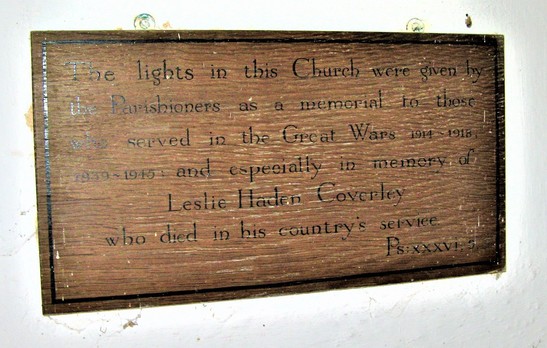 The lights in this Church were given by
the Parishioners as a memorial to those
who served in the Great Wars 1914-1918,
1939-1945; and especially in memory of
Leslie Haden Coverley
who died in his country's service.
Ps:XXXVI.